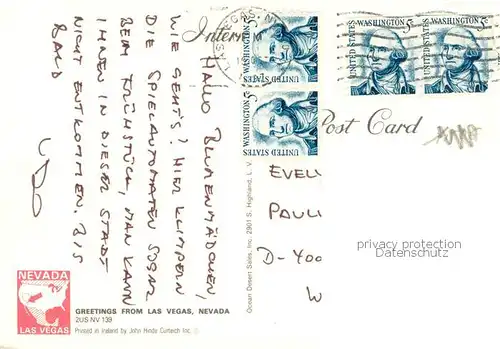 Hallo Blumenmädchen,
wie geht's? Hier klimpern
die Spielautomaten sogar
beim Frühstück, man kann
ihnen in dieser Stadt
nicht entkommen. Bis
bald
Udo
NEVADA
LAS VEGAS
GREETINGS FROM LAS VEGAS, NEVADA
2US NV 139
Printed in Ireland by John Hinde Curteich Inc.
Ocean Desert Sales, Inc. 2901 S. Highland, L. V.
Intern
WASHINGTON 5c
UNITED STATES
WASHINGTON 5c
UNITED STATES
WASHINGTON 5c
UNITED STATES
WASHINGTON 5c
UNITED STATES
Post Card
EVELI
PAULI
D-400
W
privacy protection
Datenschutz